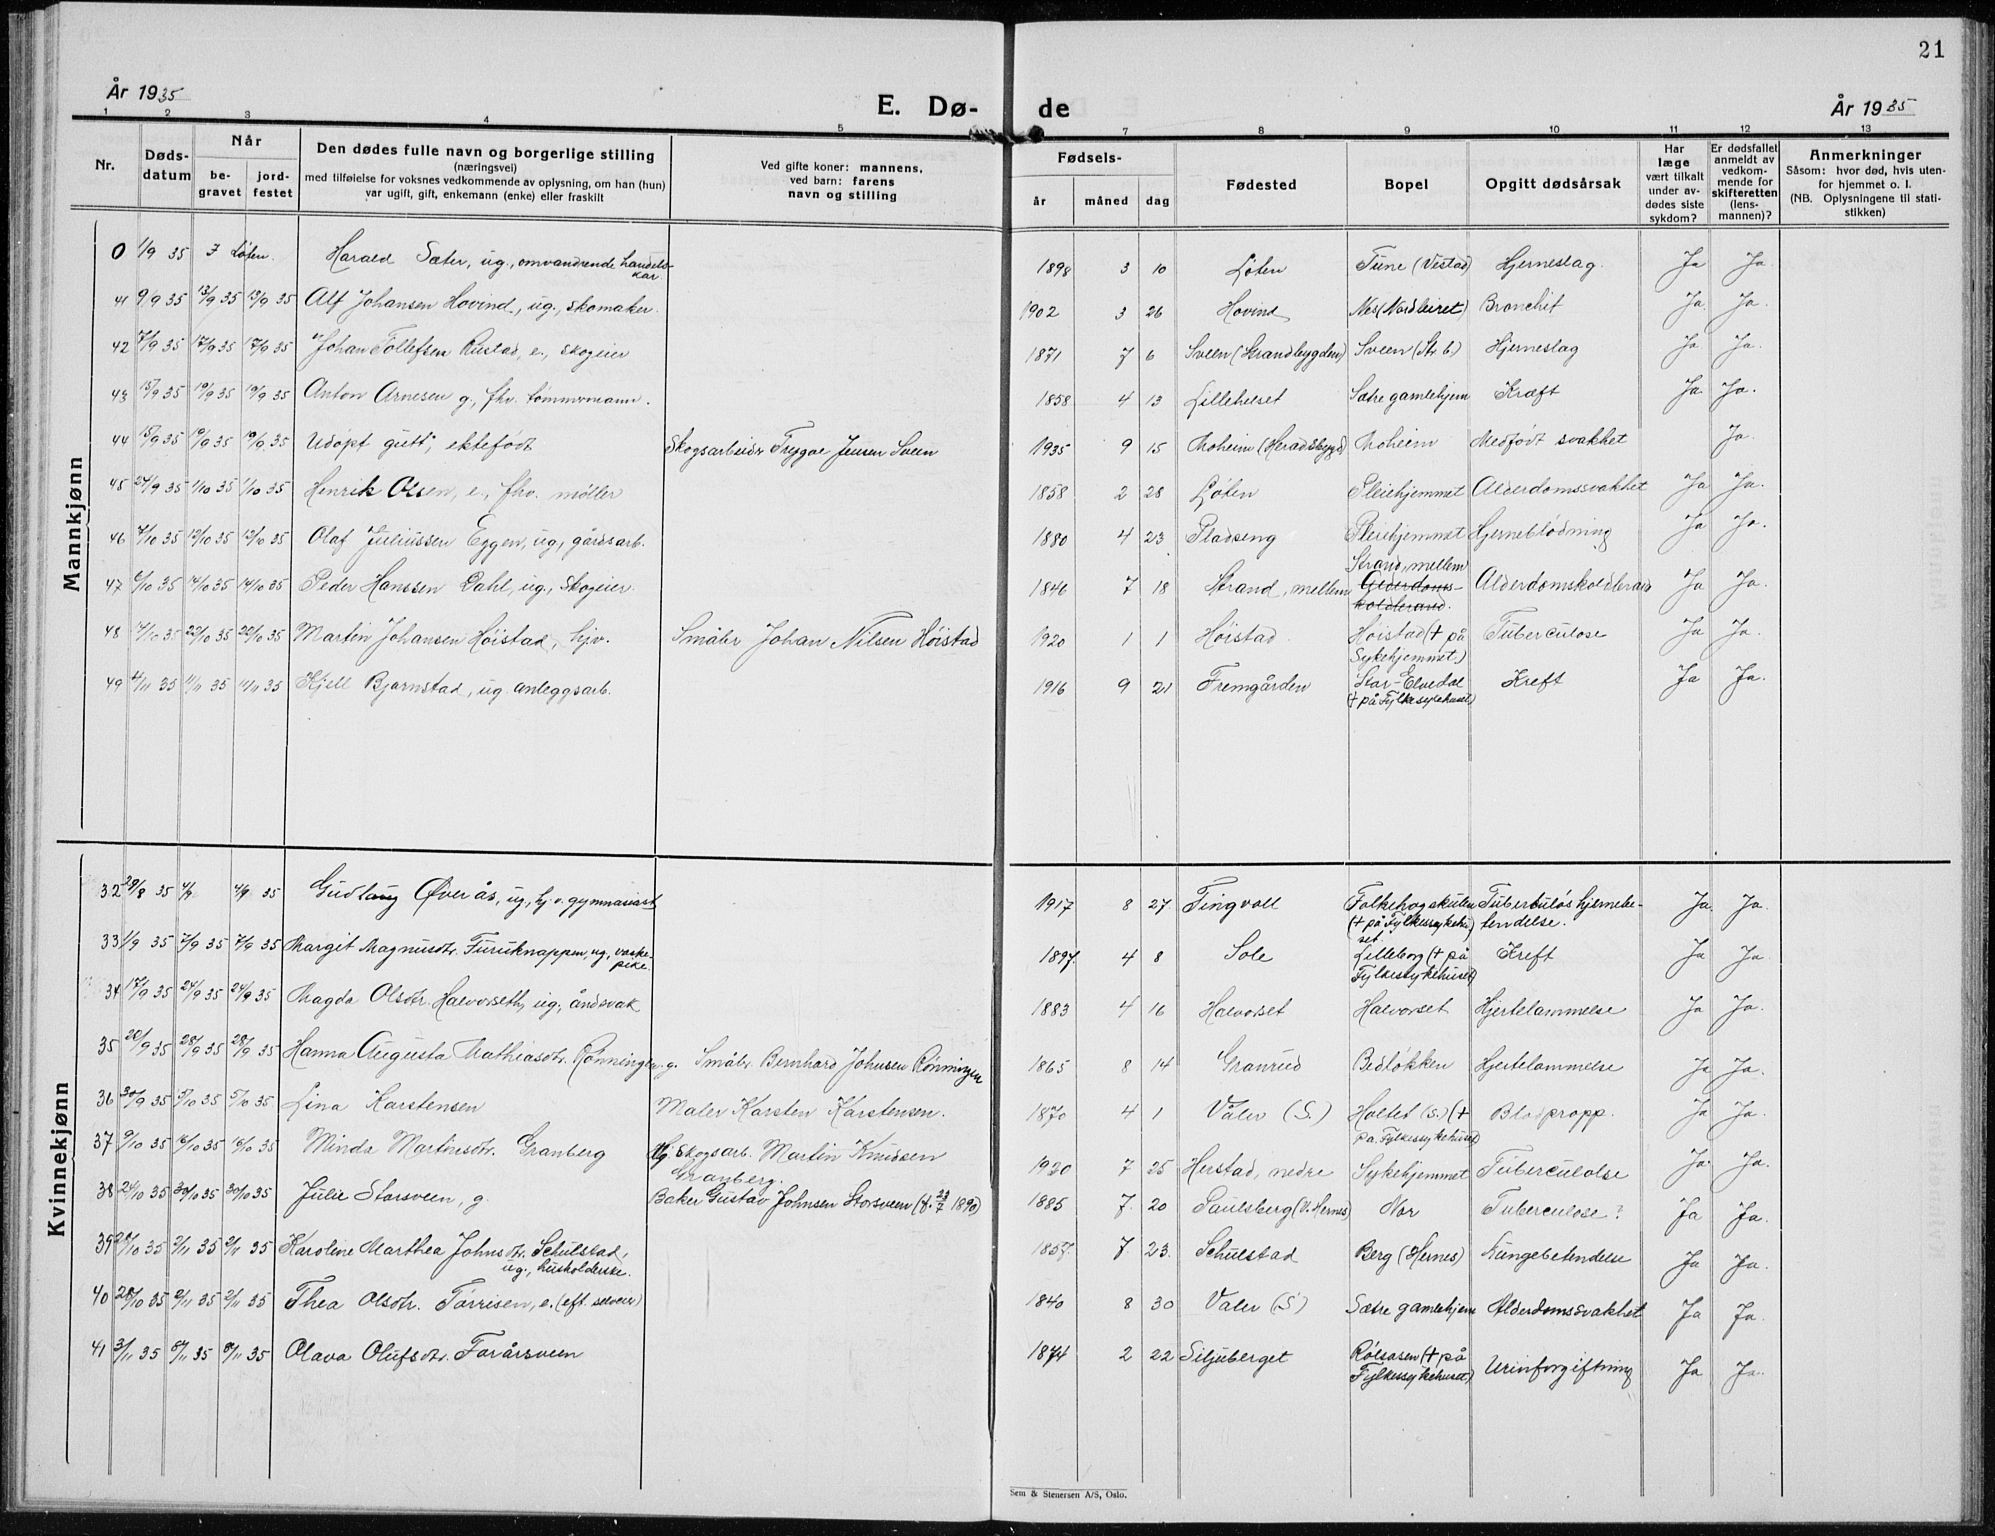 21
År 1935
E. Dø-
de
År 1935
1 2 3 4 5 7 8 9 10 11 12 13
Nr.
Døds-
datum
Når
be-
gravet
jord-
festet
Den dødes fulle navn og borgerlige stilling
(næringsvei)
med tilføielse for voksnes vedkommende av oplysning, om han (hun)
var ugift, gift, enkemann (enke) eller fraskilt
Ved gifte koner: mannens,
ved barn: farens
navn og stilling
Fødsels-
år måned dag
Fødested
Bopel
Opgitt dødsårsak
Har
læge
vært tilkalt
under av-
dødes siste
sykdom?
Er dødsfallet
anmeldt av
vedkom-
mende for
skifteretten
(lens-
mannen)?
Anmerkninger
Såsom: hvor død, hvis uten-
for hjemmet o. l.
(NB. Oplysningene til stati-
stikken)
Mannkjønn
0 1/9 35 Løten. Harald Sæter, ug., omvandrende handels-
kar 1898 3 10 Løten Tune (Vestad) Hjerneslag. Ja Ja
41 9/9 35 13/9 35 13/9 35 Alf Johansen Hovind, ug., skomaker. 1902 3 26 Hovind Nes (Nordleiret) Bronchit Ja Ja.
42 7/9 35 17/9 35 17/9 35 Johan Tollefsen Rustad, e., skogeier 1871 7 6 Sveen (Strandbygden) Sveen (Str b.) Hjerneslag Ja Ja.
43 15/9 35 19/9 35 19/9 35 Anton Arnesen g., fhv. tømmermann. 1858 4 13 Lillehelset Sætre gamlehjem Kræft Ja Ja.
44 15/9 35 19/9 35 19/9 35 Udøpt gutt, ektefødt Skogsarbeider Trygve Jensen Sveen 1935 9 15 Moheim (Heradsbygd) Moheim Medfødt svakhet Ja.
45 24/9 35 1/10 35 1/10 35 Henrik Olsen, e., fhv. møller 1858 2 28 Løten Pleiehjemmet Alderdomssvakhet Ja Ja.
46 7/10 35 12/10 35 12/10 35 Olaf Juliussen Eggen, ug, gårdsarb. 1880 4 23 Pladseng Pleiehjemmet Hjerneblødning Ja Ja.
47 6/10 35 14/10 35 14/10 35 Peder Hanssen Dahl, ug., skogeier. 1846 7 18 Strand, mellem Strand, mellem
Alderdoms-
koldbrand. Alderdomskoldbrand Ja Ja.
48 14/10 35 22/10 35 22/10 35 Martin Johansen Høistad, hjv. Småbr Johan Nilsen Høistad 1920 1 1 Høistad Høistad († på
Sykehjemmet.) Tuberculose Ja Ja.
49 11/11 35 11/11 35 Kjell Bjørnstad, ug. anleggsarb. 1916 9 21 Fremgården Stor-Elvedal
(† på Fylkessykehuset) Kreft Ja Ja.
Kvinnekjønn
32 29/8 35 4/9 4/9 35 Gudlaug Øverås, ug, hj v. gymnasiast 1917 8 27 Tingvoll Folkehøgskulen
(† på Fylkessykehu-
set. Tuberkuløs hjernebe-
tendelse. Ja. Ja.
33 1/9 35 7/9 35 7/9 35 Margit Magnusdtr. Furuknappen, ug, vaske-
pike. 1897. 4 8 Sole Lilleborg († på
Fylkessykehuset) Kreft Ja Ja.
34 17/9 35 24/9 35 24/9 35 Magda Olsdtr. Halvorseth, ug., åndsvak 1883 4 16 Halvorset Halvorset Hjertelammelse Ja Ja.
35 20/9 35 28/9 35 28/9 35 Hanna Augusta Mathiasdtr. Rønningen g. Småbr. Bernhard Johnsen Rønningen 1865 8 14 Granrud Bedløkken Hjertelammelse Ja Ja.
36 30/9 35 5/10 35 5/10 35 Lina Karstensen Maler Karsten Karstensen. 1870 4 1 Våler (S.) Holtet (S.) (†
pa Fylkessykehuset) Blodpropp. Ja Ja.
37 9/10 35 16/10 35 16/10 35 Minda Martinsdtr. Granberg Skogsarb. Martin Knudsen
Granberg. 1920 7 25 Herstad, nedre Sykehjemmet Tuberculolse Ja Ja.
38 24/10 35 30/10 35 30/10 35 Julie Storsveen, g. Baker Gustav Johnsen Storsveen (f. 23/7 1890) 1885 7. 20 Paulsberg (V. Hernes) Nor Tuberculose? Ja Ja.
39 35 2/11 35 2/11 35 Karoline Marthea Johnsdtr. Schulstad,
ug., husholderske. 1857. 7 23. Schulstad Berg (Hernes) Lungebetendelse Ja Ja.
40 28/10 35 2/11 35 2/11 35 Thea Olsdtr. Tørrisen, e. (eft. selveier) 1840 8 30 Valer (S) Sætre gamlehjem Alderdomssvakhet Ja Ja.
41 3/11 35 8/11 35 8/11 35 Olava Olufsdtr. Forårsveen 1874 2 22 Siljuberget Rølsåsen († på
Fylkessykehuset) Urinforgiftning Ja Ja.
Sem & Stenersen A/S, Oslo.